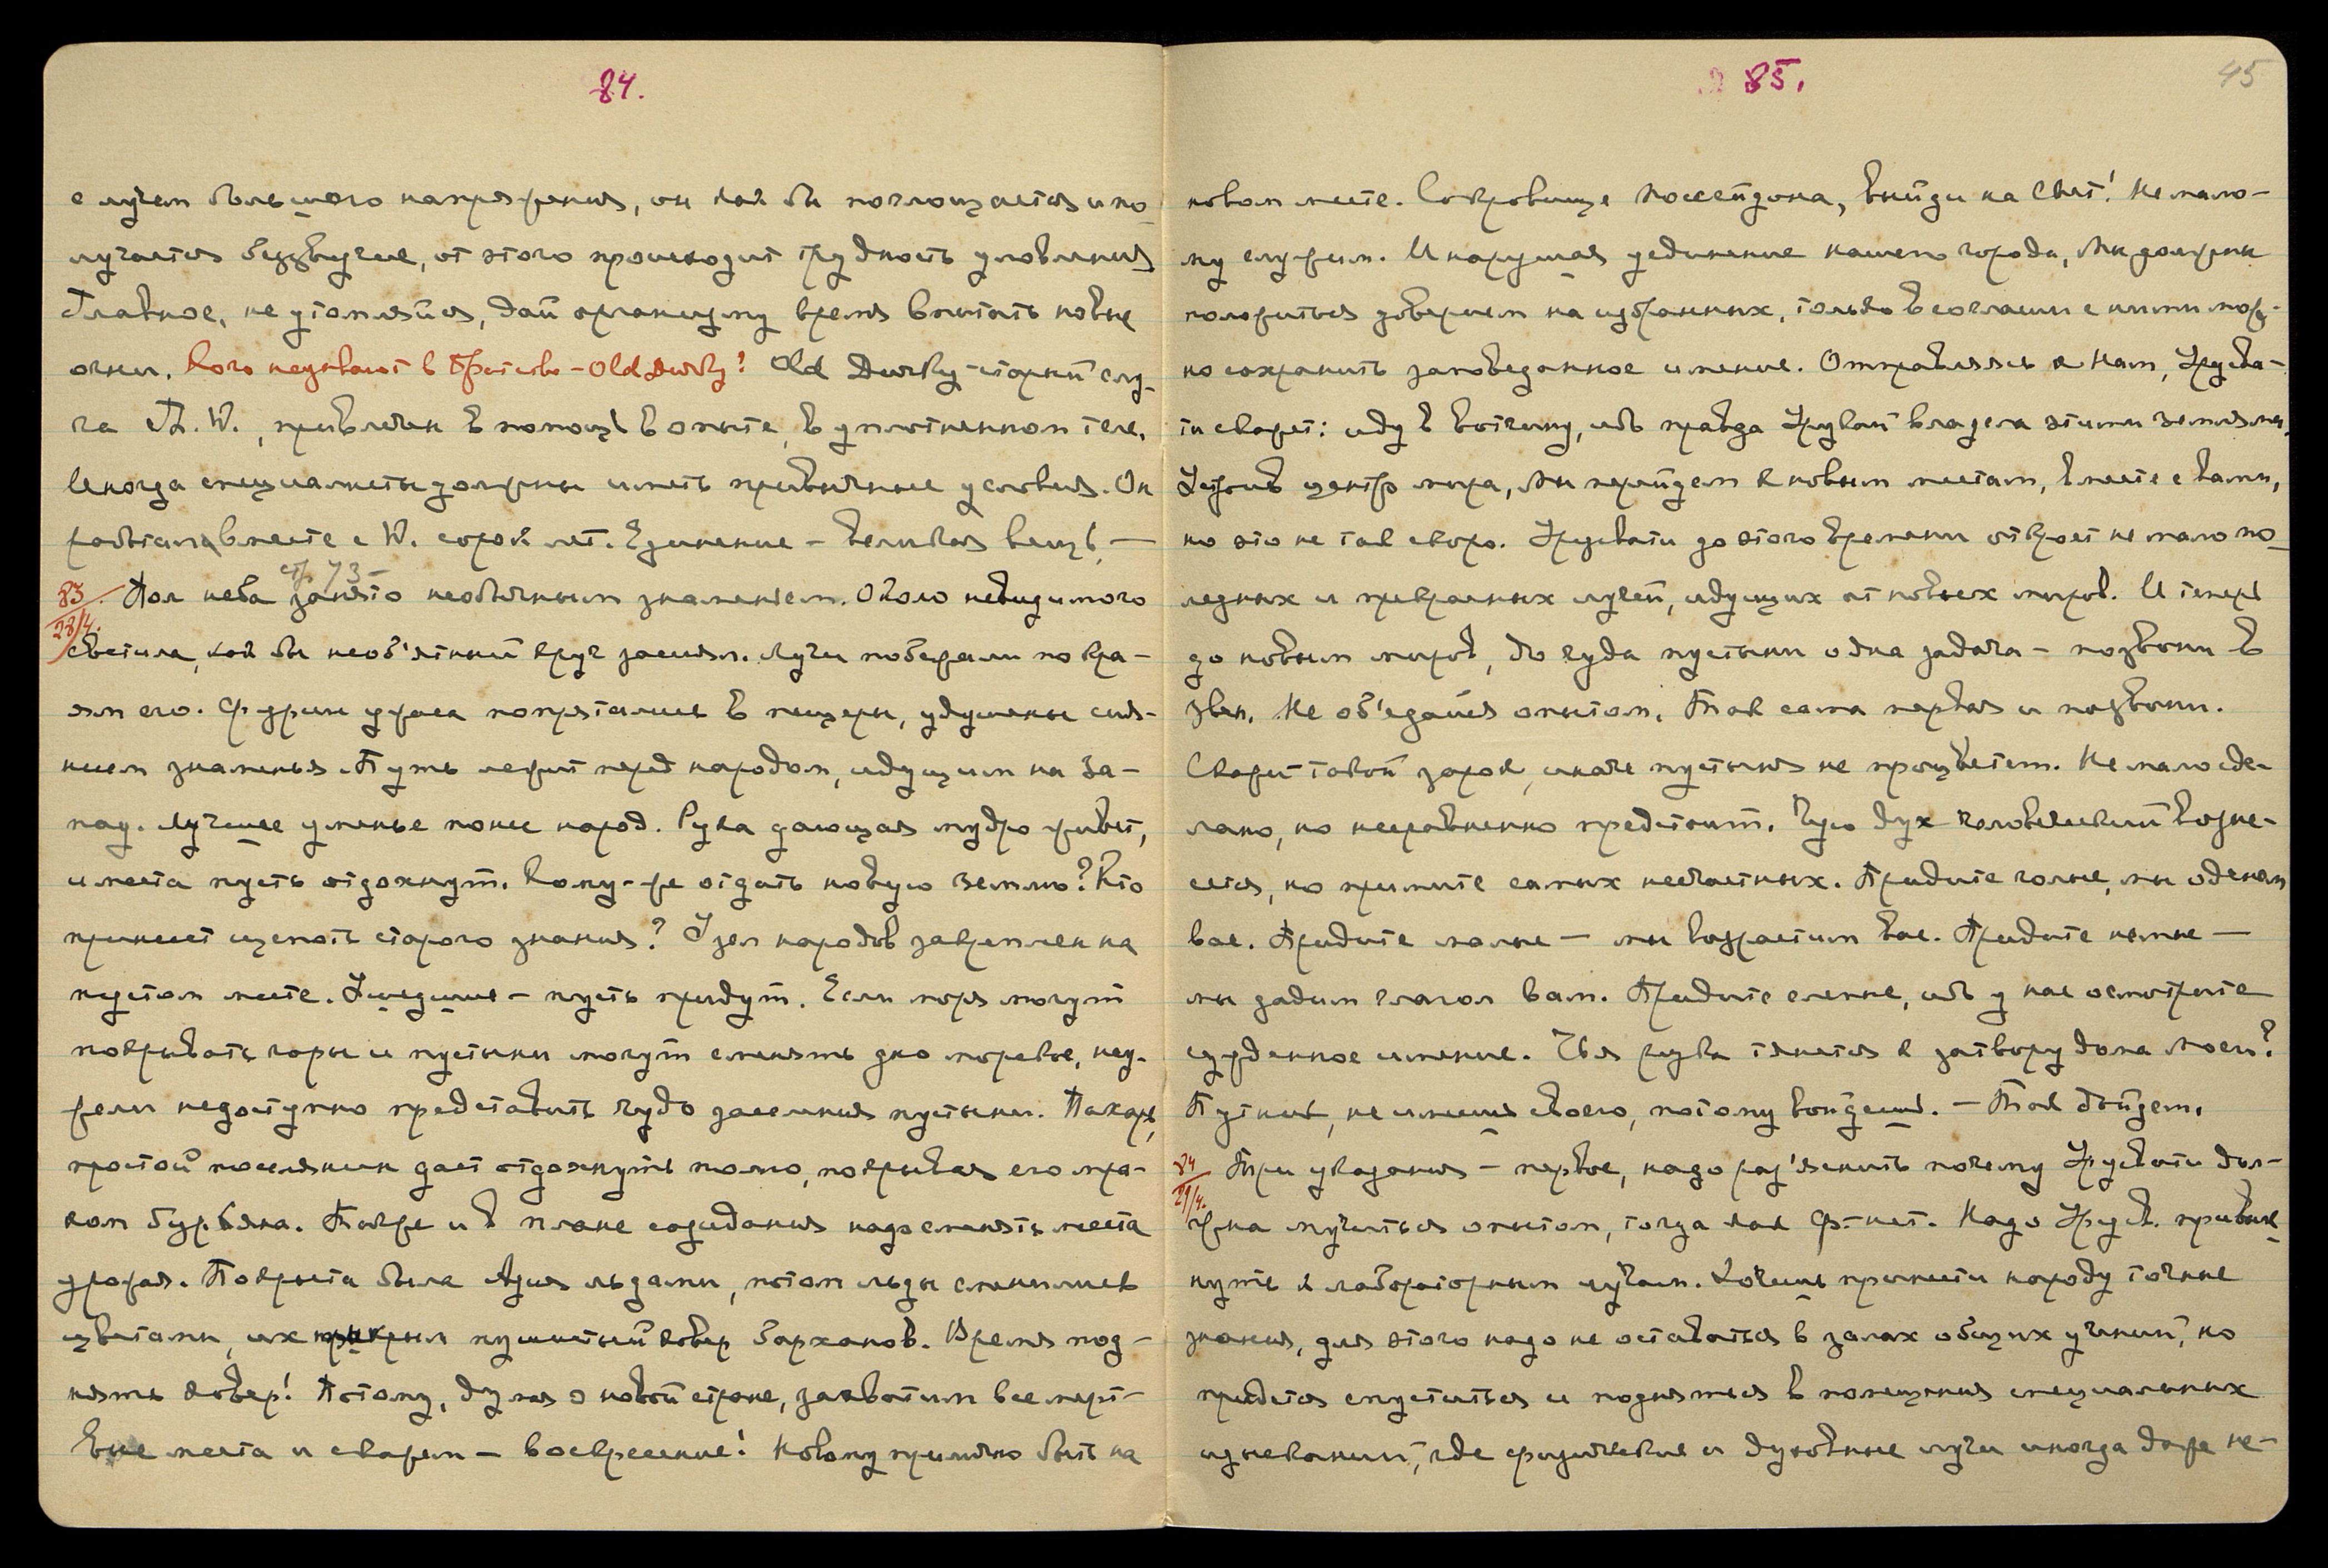 84.
с лучем большого напряжения, он как бы поглощается и по-
лучается беззвучие, от этого происходит трудность уловления
Главное, не утомляйся, дай организму время впитать новые
огни. Кого называют в Братстве - Old Derby? Old Derby - старый слу-
га Т.W., привлечен в помощь в опыте, в уплотненном теле.
Иногда специалисты должны иметь привычные условия. Он
работал вместе с W. сорок лет. Единение - великая вещь, —
стр. 73 -
83 28/4. Пол неба занято необычным знаменьем. Около невидимого
светила, как бы необ'ятный круг засиял. Лучи побежали по кра-
ям его. Фурии ужаса попрятались в пещеры, удушены сия-
нием знаменья. Путь лежит перед народом, идущим на За-
пад. Лучшее уменье понес народ. Рука дающая мудро живет,
и места пусть отдохнут. Кому-же отдать новую землю? Кто
принесет щепоть старого знания? Узел народов закреплен на
пустом месте. Ушедшие - пусть придут. Если моря могут
покрывать горы и пустыни могут сменять дно морское, неу-
жели недоступно представить чудо заселения пустыни. Пахарь,
простой поселянин дает отдохнуть полю, покрывая его мра-
ком бурьяна. Также и в плане созидания надо сменять места
урожая. Покрыта была Азия льдами, потом льды сменились
цветами, их крыл пушистый ковер барханов. Время под-
нять ковер! Потому, думая о новой стране, захватим все мерт-
вые места и скажем - воскресение! Новому прилично быть на
85.
45
новом месте. Сокровище Посейдона, выйди на Свет! Не мало-
му служим. И нарушая уединение нашего города, Мы должны
положиться доверием на избранных, только в согласии с ними мож-
но сохранить заповеданное имение. Отправляясь к Нам, Урусва-
ти скажет: иду в вотчину, ибо правда Зурван владела этими землями.
Устроив центр мира, Мы перейдем к новым местам, вместе с вами,
но это не так скоро. Урусвати до этого времени откроет не мало по-
лезных и прекрасных лучей, идущих от новых миров. И теперь
до новых миров, до чуда пустыни одна задача - позвони в
звон. Не об'едайся опытом. Так сама первая и позвони.
Скажи такой зарок, иначе пустыня не процветет. Не мало сде-
лано, но несравненно предстоит. Чую дух человеческий возне-
сется, но примите самых несчастных. Придите голые, мы оденем
вас. Придите малые — мы возрастим вас. Придите немые —
мы дадим глагол вам. Придите слепые, ибо у нас осмотрите
сужденное имение. Чья рука тянется к затвору дома моего?
Путник, не имеешь своего, потому войдешь. — Так дойдем.
84 29/4. Три указания - первое, надо раз'яснить почему Урусвати дол-
жна мучиться опытом, тогда как Ф.-нет. Надо Урусв. привык-
нуть к лабораторным лучам. Хочешь принести народу точные
знания, для этого надо не оставаться в залах общих учений, но
придется спуститься и подняться в помещения специальных
изысканий, где физические и духовные лучи иногда даже не-